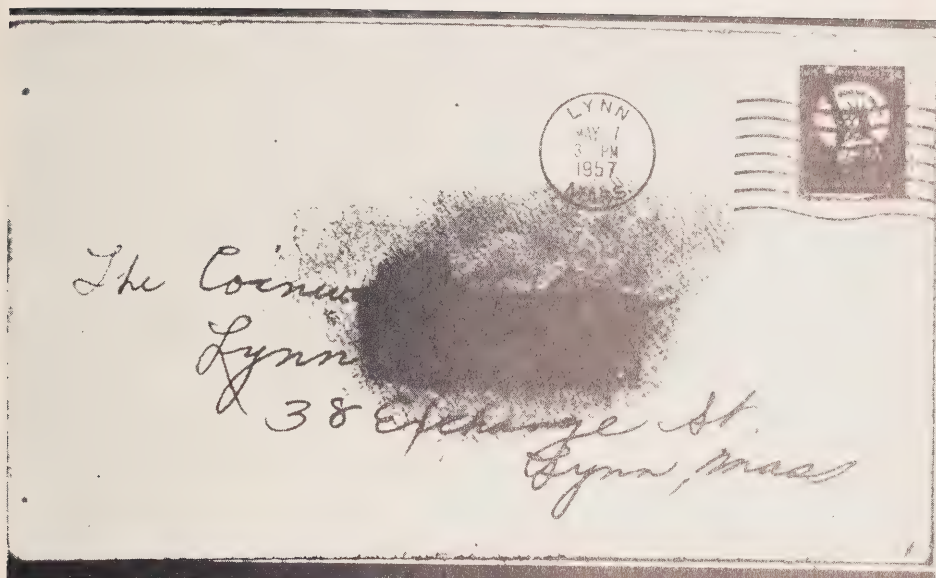 LYNN
MAY 7
3 PM
1957
MASS
The
Lynn
38 Exchange St.
Lynn, Mass